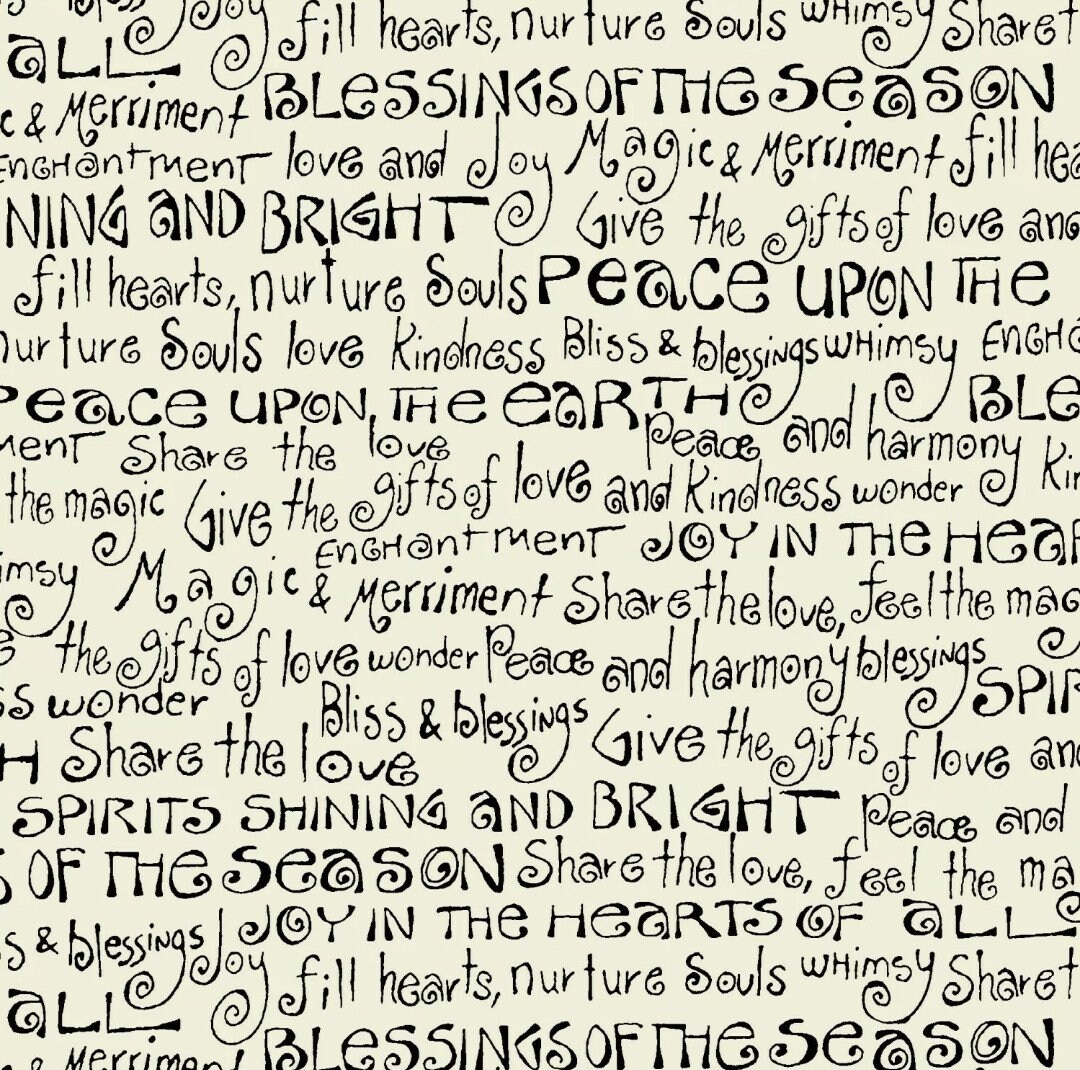 Bliss & blessings Joy fill hearts, nurture Souls whimsy Share t
aLL
BLESSINGS OF THE SEASON
c & Merriment
ENCHantment love and Joy Magic & Merriment fill hea
NING AND BRIGHT Give the gifts of love and
fill hearts, nurture Souls Peace UPON THe
nurture Souls love Kindness Bliss & blessings whimsy ENCHa
Peace UPON THe eaRTH BLe
ment Share the love Peace and harmony Kin
the magic Give the gifts of love and Kindness wonder
ENCHantment JOY IN THe Hear
imsy Magic & Merriment Share the love, feel the mag
the gifts of love wonder Peace and harmony blessings
ss wonder Bliss & blessings SPIR
H Share the love Give the gifts of love and
SPIRITS SHINING aND BRIGHT Peace and
S OF THe SeaSON Share the love, feel the ma
s & blessings Joy JOY IN THe HeaRTS OF aLL
fill hearts, nurture Souls whimsy Share t
aLL
BLeSSINGS OF THe SeaSON
& Merriment